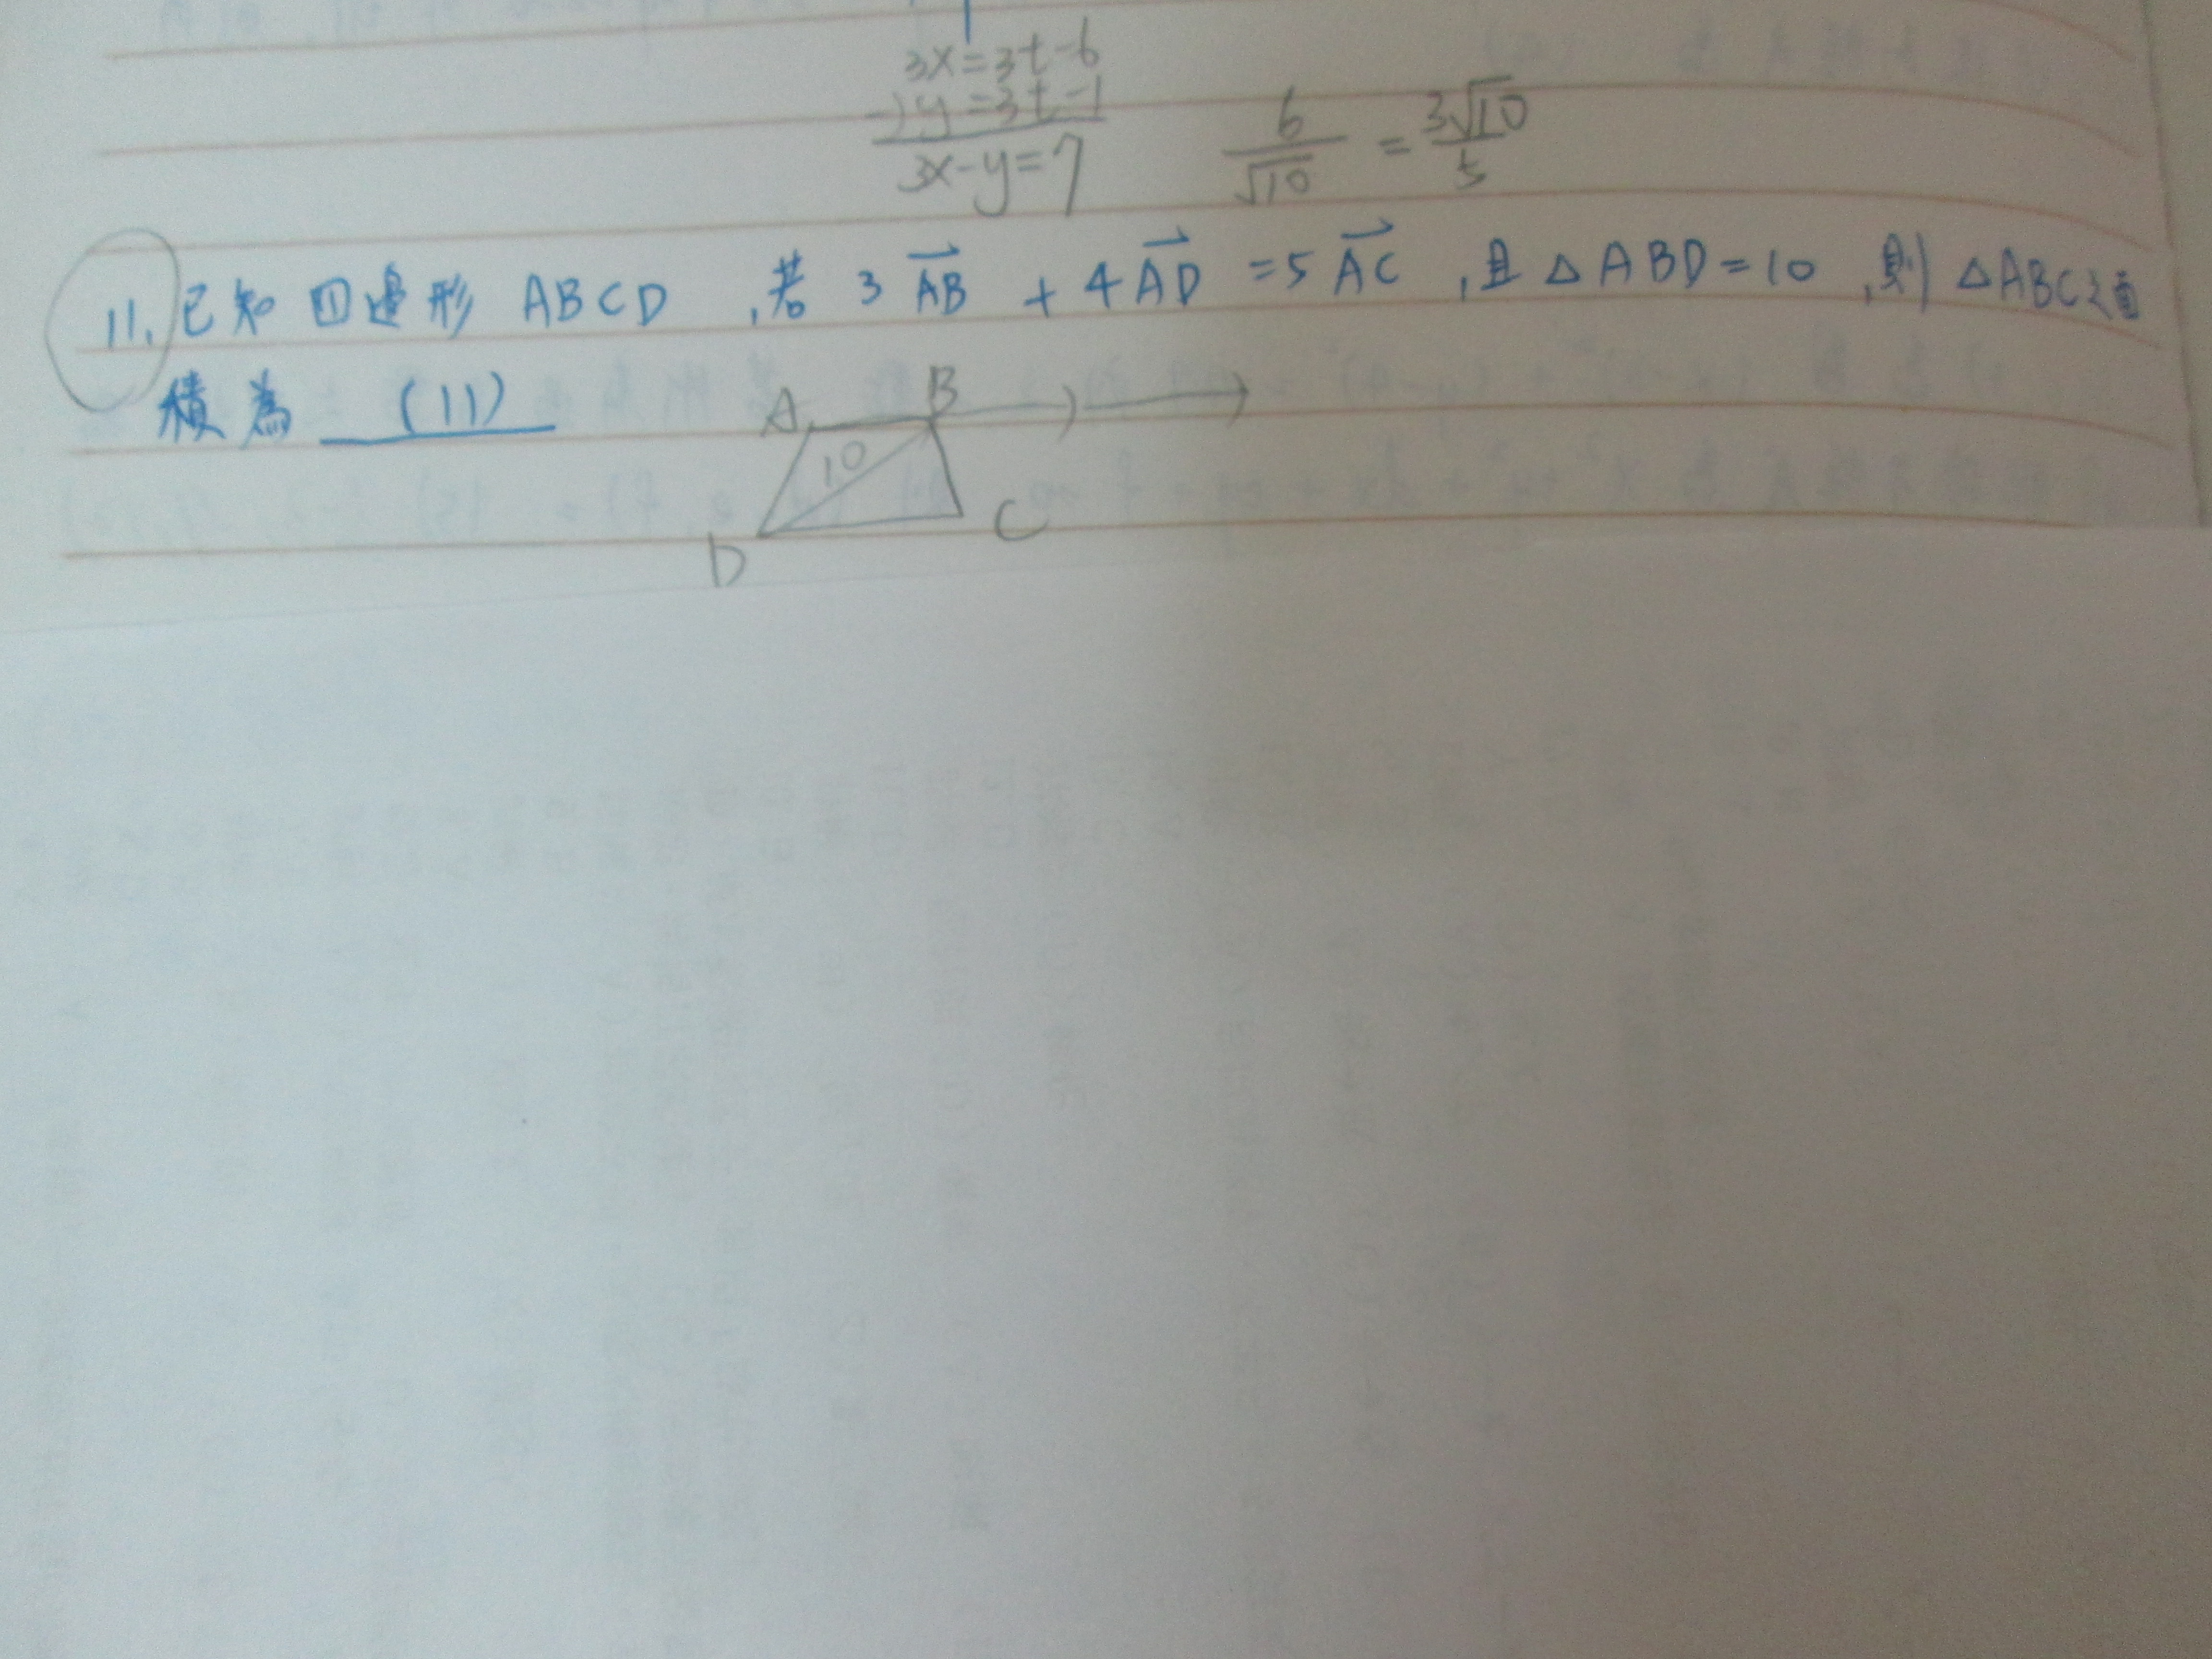 3x=3t-6
-) y=3t-1
3x-y=7
6/√10 = 3√10/5
11. 已知四邊形 ABCD ,若 3AB⃗ + 4AD⃗ =5AC⃗ ,且 △ABD=10 ,則 △ABC之面
積為 (11)
A B
10
D C